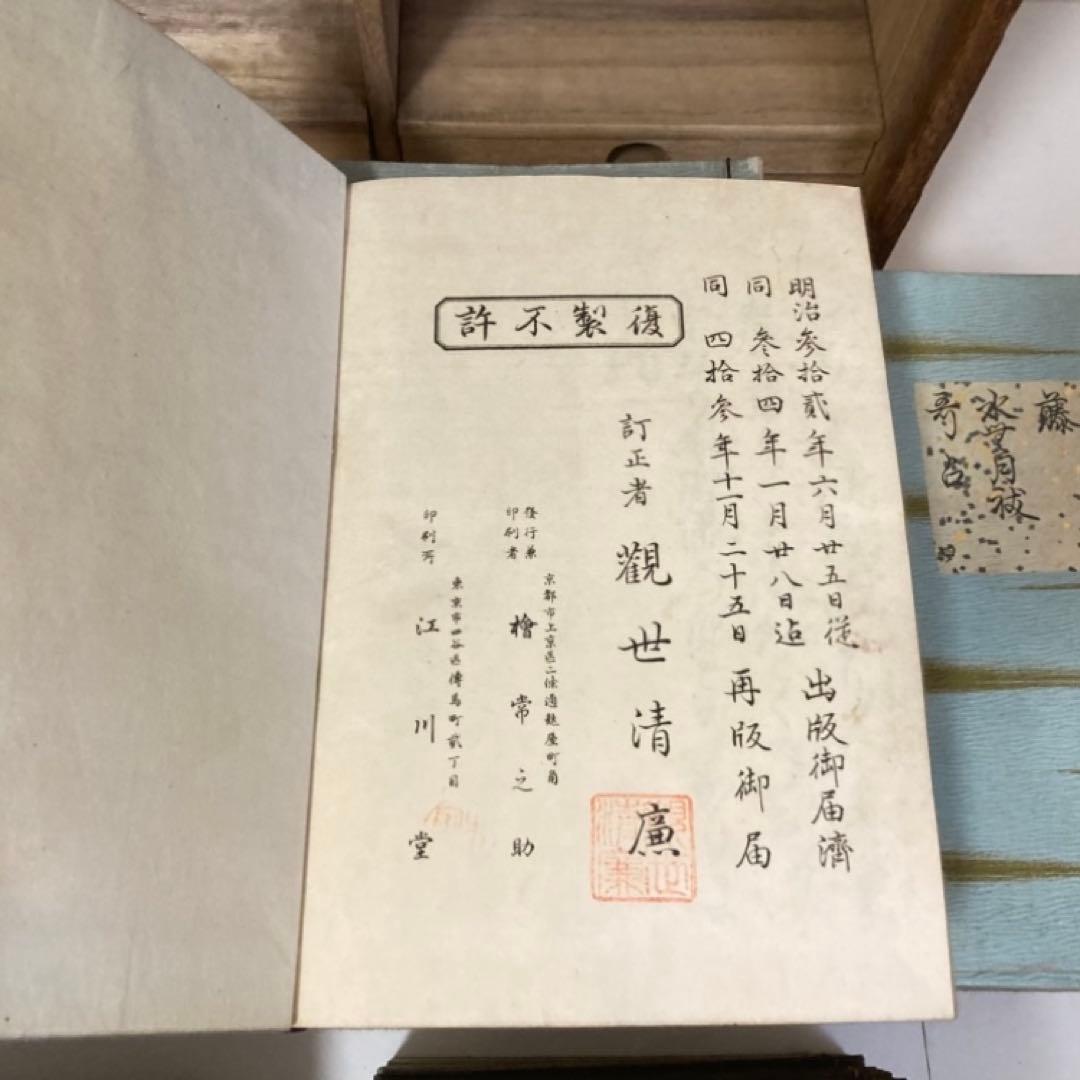 明治參拾貳年六月廿五日從
同 參拾四年一月廿八日迠
出版御届濟
同 四拾參年十一月二十五日 再版御届
復製不許
訂正者 觀世清廉
發行兼
印刷者
京都市上京區二條通麩屋町角
檜常之助
印刷所
東京市四谷區傳馬町貳丁目
江川堂
藤
水無月祓